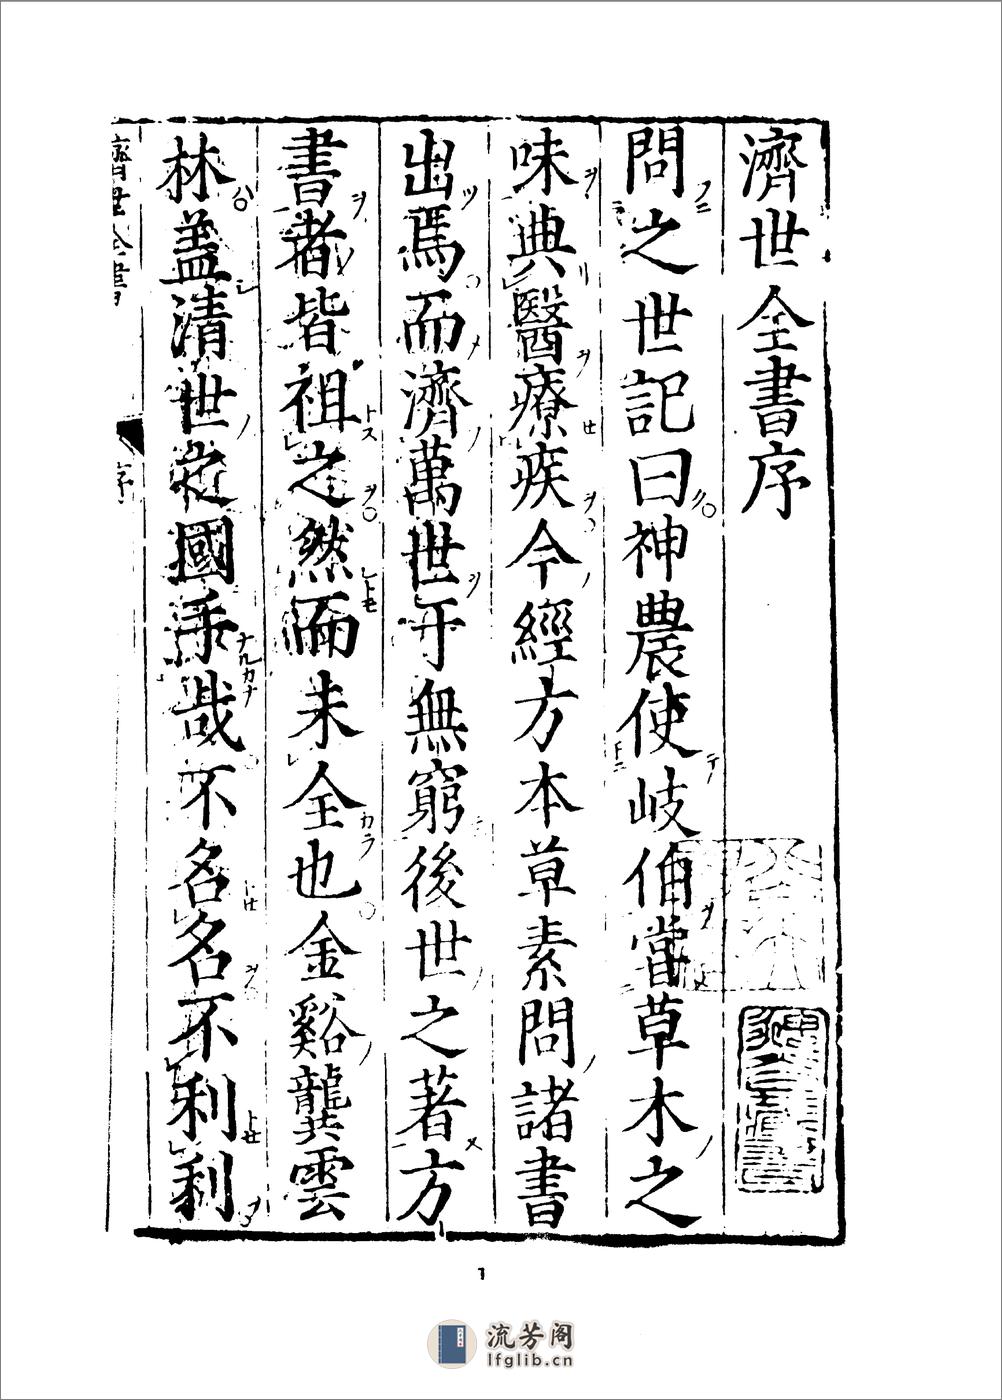 濟世全書序
問之世記曰神農使岐伯嘗草木之
味典醫療疾今經方本草素問諸書
出焉而濟萬世于無窮後世之著方
書者皆祖之然而未全也金谿龔雲
林蓋清世之國手哉不名名不利利
濟世全書
序
1
流芳阁
lfglib.cn